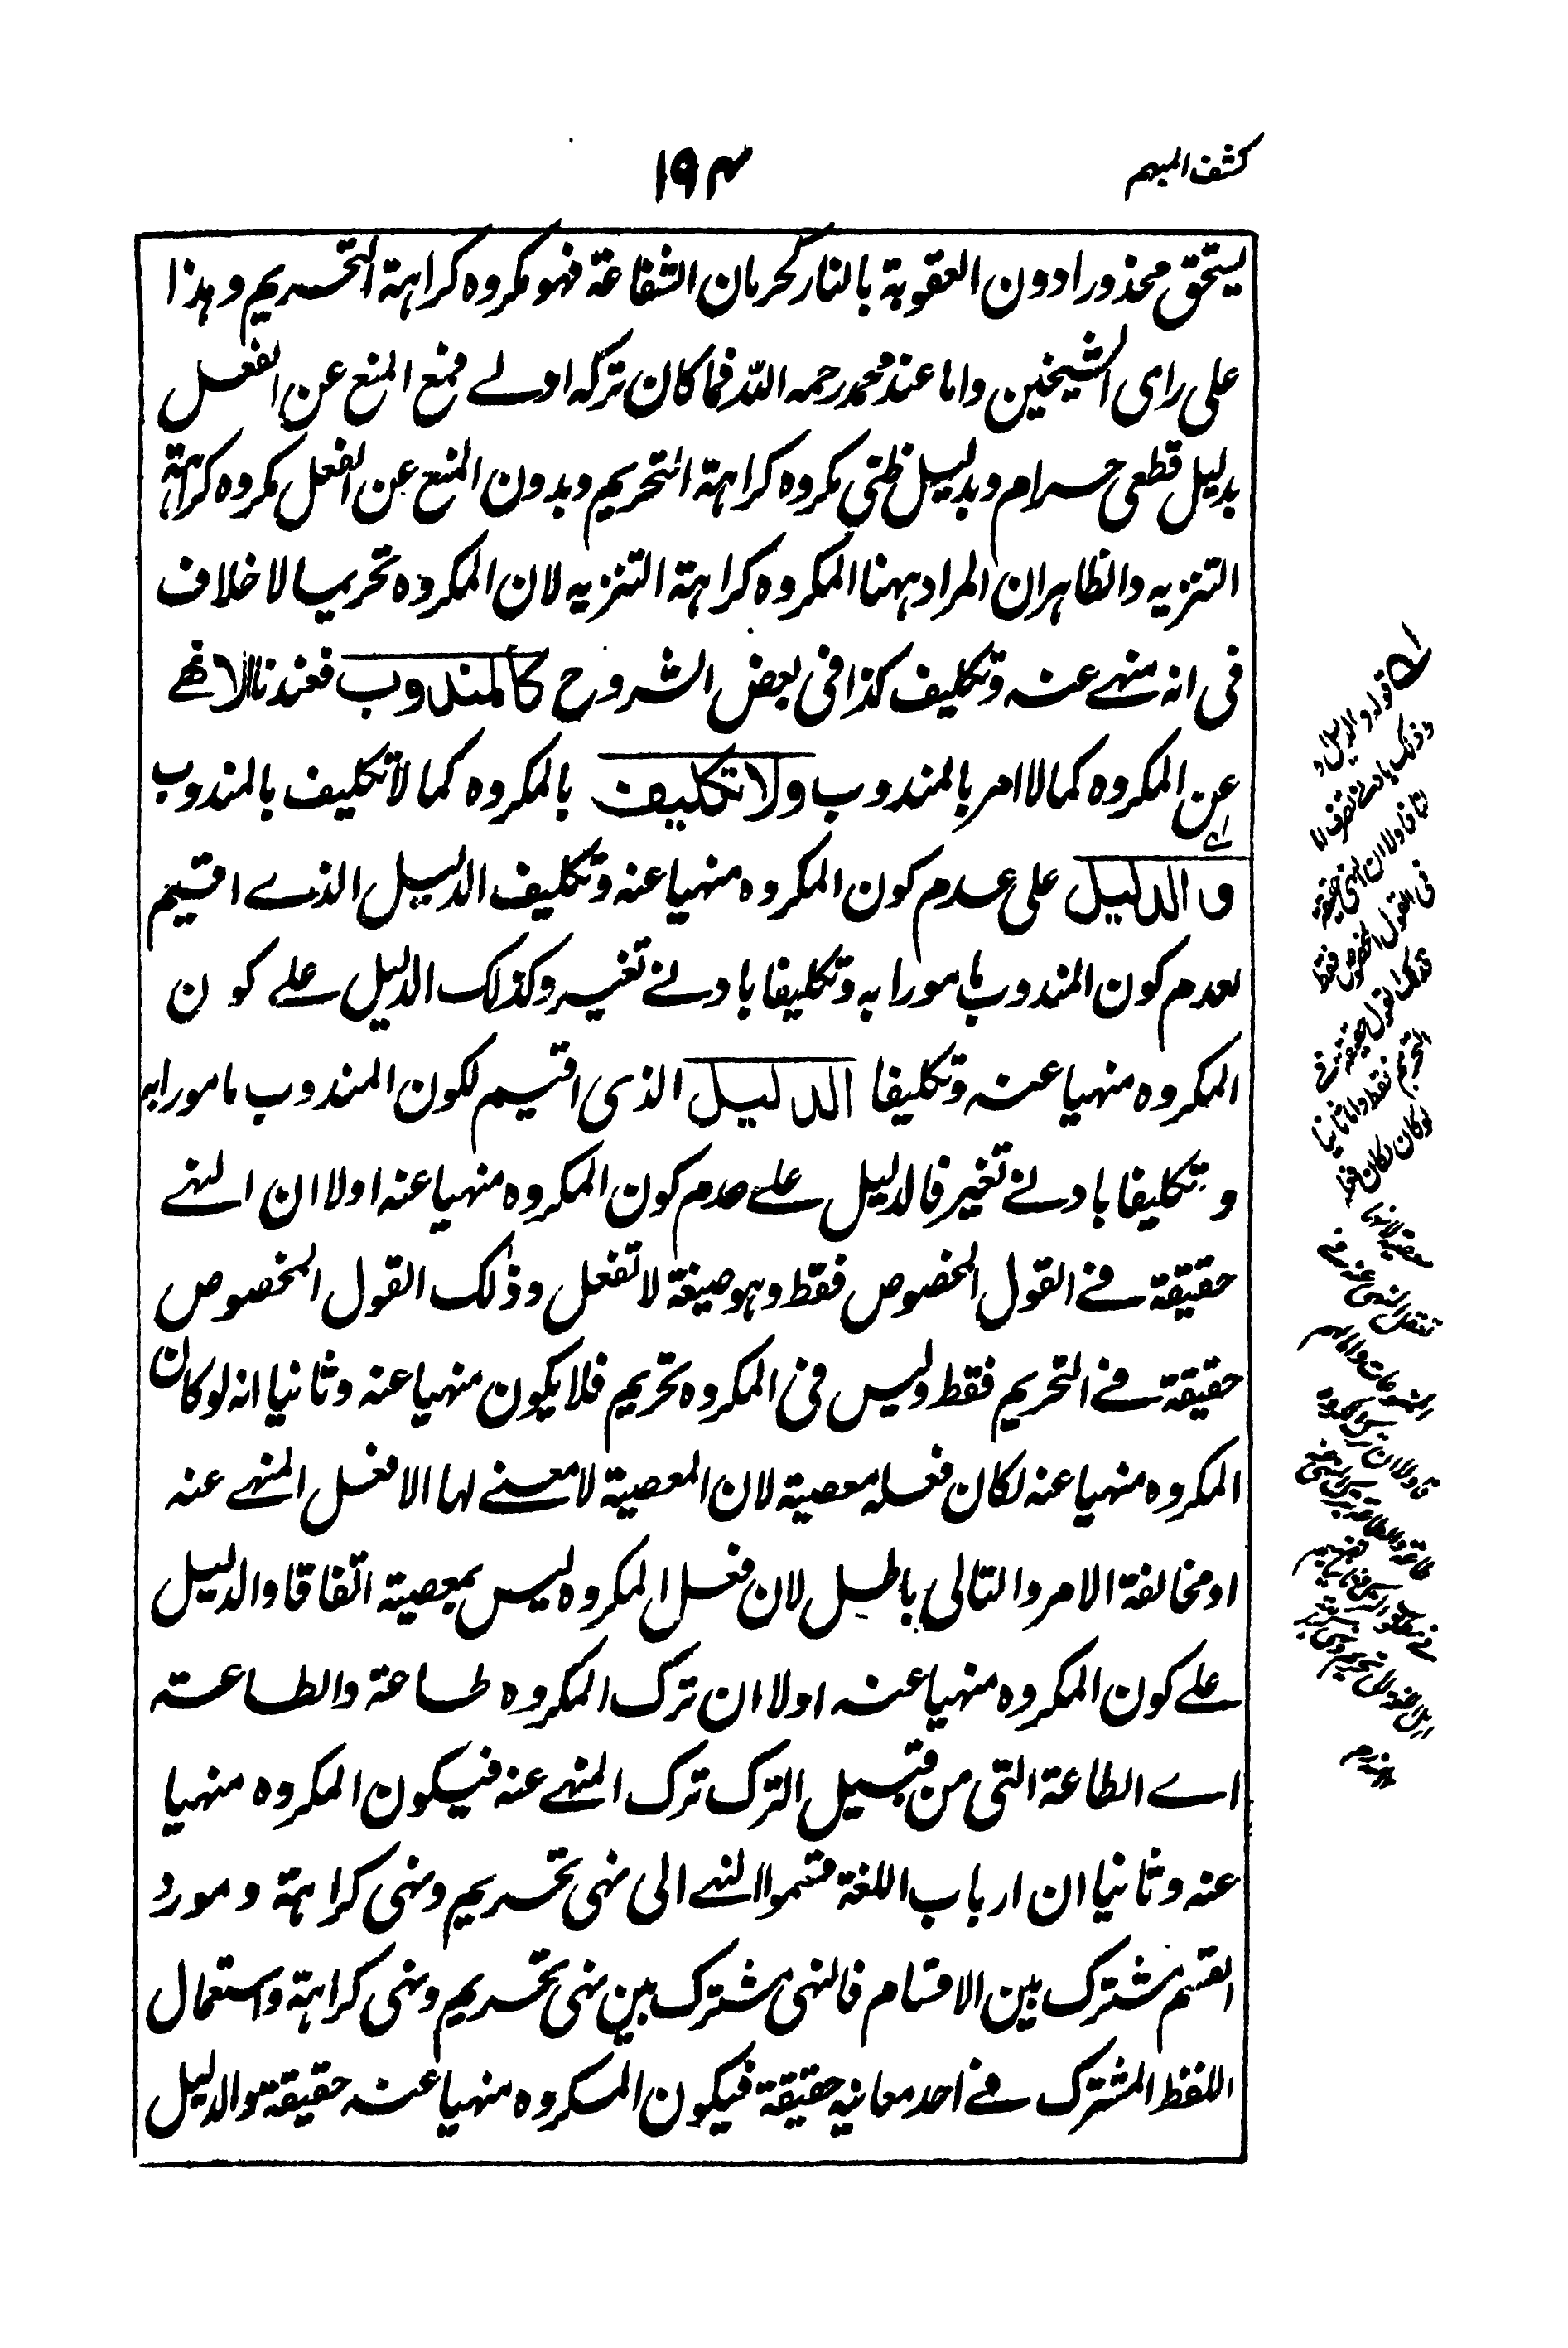 كشف المبهم
١٩٤
يستحق محذورا دون العقوبة بالنار كحرمان الشفاعة فهو مكروه كراهة التحريم وهذا
على راى الشيخين واما عند محمد رحمه الله فما كان تركه اولے فمع المنع عن الفعل
بدليل قطعى حرام وبدليل ظنى مكروه كراهة التحريم وبدون المنع عن الفعل مكروه كراهة
التنزيه والظاهر ان المراد ههنا المكروه كراهة التنزيه لان المكروه تحريما لا خلاف
فى انه منهے عنه وتكليف كذا فى بعض الشروح كالمندوب فعندنا لا نهے
عن المكروه كما لا امر بالمندوب ولا تكليف بالمكروه كما لا تكليف بالمندوب
اے
والدليل على عدم كون المكروه منهيا عنه وتكليف الدليل الذے اقيم
لعدم كون المندوب مامورا به وتكليفا بادنے تغير وكذلك الدليل علے كون
المكروه منهيا عنه وتكليفا الدليل الذى اقيم لكون المندوب مامورا به
وتكليفا بادنے تغير فالدليل علے عدم كون المكروه منهيا عنه اولا ان النهے
حقيقة فے القول المخصوص فقط وهو صيغة لا تفعل وذلك القول المخصوص
حقيقة فے التحريم فقط وليس فى المكروه تحريم فلا يكون منهيا عنه وثانيا انه لو كان
المكروه منهيا عنه لكان فعله معصية لان المعصية لا معنے لها الا فعل المنهے عنه
او مخالفة الامر والتالى باطل لان فعل المكروه ليس بمعصية اتفاقا والدليل
علے كون المكروه منهيا عنه اولا ان ترك المكروه طاعة والطاعة
اے الطاعة التى من قبيل الترك ترك المنهے عنه فيكون المكروه منهيا
عنه وثانيا ان ارباب اللغة قسموا النهے الى نهى تحريم ونهى كراهة ومورد
القسم مشترك بين الاقسام فالنهى مشترك بين نهى تحريم ونهى كراهة واستعمال
اللفظ المشترك فے احد معانيه حقيقة فيكون المكروه منهيا عنه حقيقة والدليل
قوله والدليل
وذلك بادنے تصرف
اولا ان النهى حقيقة
فى القول المخصوص فقط
وذلك القول حقيقة فے
التحريم فقط واما ثانيا
لو كان لكان فعله
معصية لانها